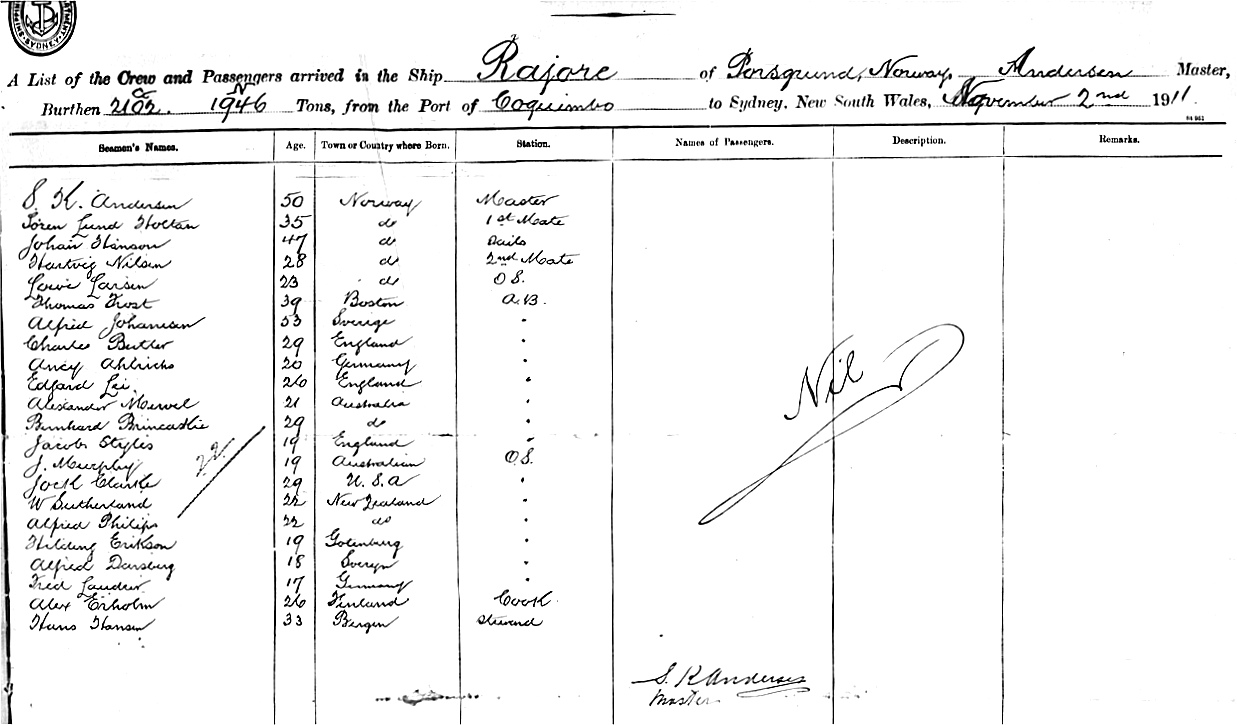 A List of the Crew and Passengers arrived in the Ship Rajore of Porsgrund, Norway, Andersen Master,
Burthen 2102 G 1946 N Tons, from the Port of Coquimbo to Sydney, New South Wales, November 2nd 1911.
Seamen's Names. Age. Town or Country where Born. Station. Names of Passengers. Description. Remarks.
S. K. Andersen 50 Norway Master
Sören Lund Holtan 35 do 1st Mate
Johan Hanson 47 do Sails
Hartvig Nilsen 28 do 2nd Mate
Larsen 23 do O S.
Thomas Frost 39 Boston A.B.
Alfred Johansen 53 Sverige "
Charles Butler 29 England "
Ahlrichs 20 Germany "
Edgard 26 England "
Alexander 21 Australia "
Bernhard 29 do "
Jacob Styles 19 England "
J. Murphy 19 Australian O.S.
Jock Clarke 29 U.S.A "
W Sutherland 22 New Zealand "
Alfred Philips 22 do "
Hilding Erikson 19 Gotenburg "
Alfred Darsberg 18 "
Fred 17 Germany "
Alex Erholm 26 Finland Cook
Hans Hansen 33 Bergen Steward
22
Nil
S. K Andersen
Master